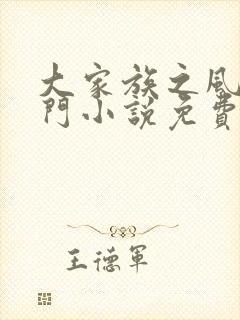 大家族之風
門小說免費
王德軍